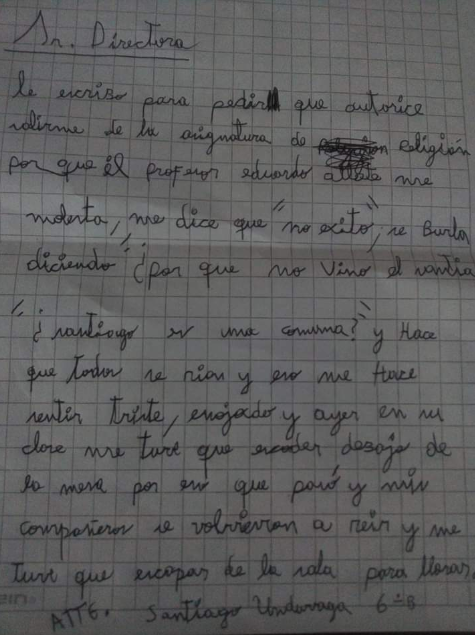 Sr. Directora
le escribo para pedir que autorice
salirme de la asignatura de religión
por que el profesor eduardo allate me
molesta, me dice que "no exito", se Burla
diciendo "¿por que no vino el santia
"¿santiago es una comuna?" y Hace
que todos se rian y eso me Hace
sentir triste, enojado y ayer en su
clase me tuve que esconder desajo de
la mesa por eso que pasó y mis
compañeros se volvieron a reir y me
tuve que escapar de la sala para llorar,
ATTE. Santiago Undurraga 6-B